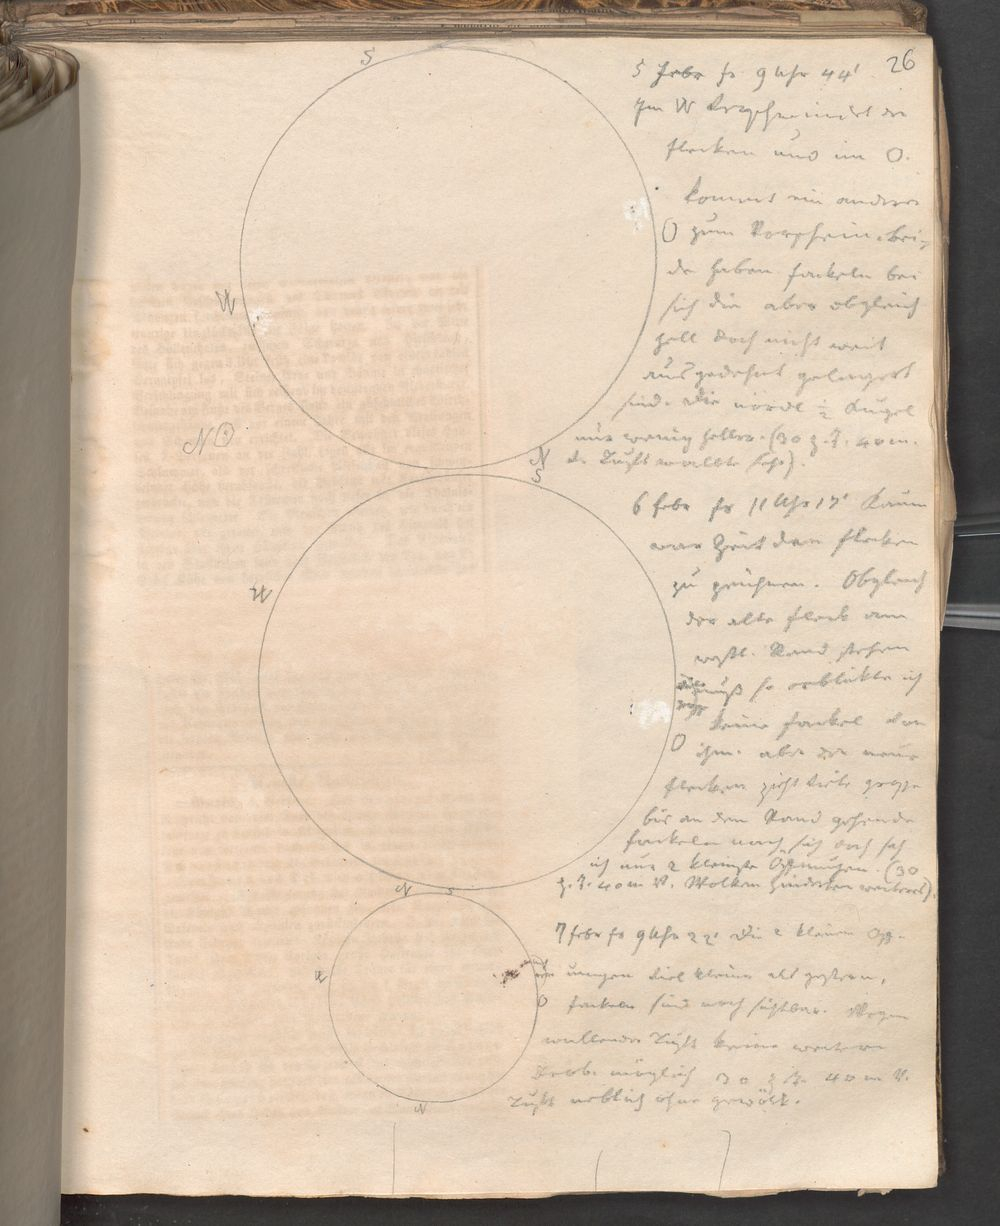 26
S
5 Febr fr. 9 Uhr 44'
Im W verschwindet der
flecken und im O.
kommt ein anderer
O zum Vorschein. bei-
de haben fackeln bei
sich die aber obgleich
hell doch nicht weit
W
ausgedehnt gelagert
sind. die nördl ½ Kugel
N
nur wenig heller. (30 z. F. 40 m.
N
die Luft wallte sehr).
S
6 febr fr 11 Uhr 17' Kaum
war Zeit den flecken
zu zeichnen. Obgleich
W
der alte fleck am
westl. Rand stehen
muß so erblickte ich
keine fackel von
O
ihm. aber der neue
flecken zieht viele grosse
bis an den Rand gehende
fackeln nach sich doch sah
ich nur 2 kleinste Öffnungen. (30
z. F. 40 m V. Wolken hinderten weiteres).
N S
7 febr fr 9 Uhr 22' die 2 kleinen Öff-
nungen viel kleiner als gestern,
W
O
fackeln sind noch sichtbar. Wegen
wallender Luft keine weitere
Beob. möglich 30 z F. 40 m V.
N
Luft neblich ohne gewölk.